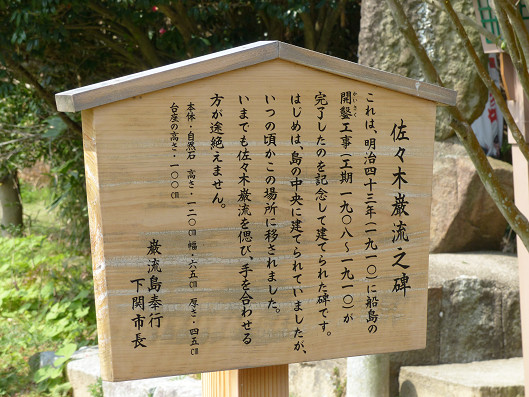 佐々木巌流之碑
これは、明治四十三年(一九一〇)に船島の
開鑿工事(工期 一九〇八~一九一〇)が
かいさく
完了したのを記念して建てられた碑です。
はじめは、島の中央に建てられていましたが、
いつの頃かこの場所に移されました。
いまでも佐々木巌流を偲び、手を合わせる
方が途絶えません。
本体・自然石 高さ・一二〇㎝ 幅・六五㎝ 厚さ・四五㎝
台座の高さ・一〇〇㎝
巌流島奉行
下関市長